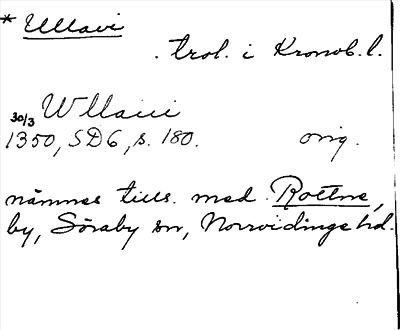 * Ullavi
. trol. i Kronob. l.
30/3 Wllaui
1350, SD6, s. 180. orig.
nämnes tills. med Roetne,
by, Söraby sn, Norrvidinge hd.